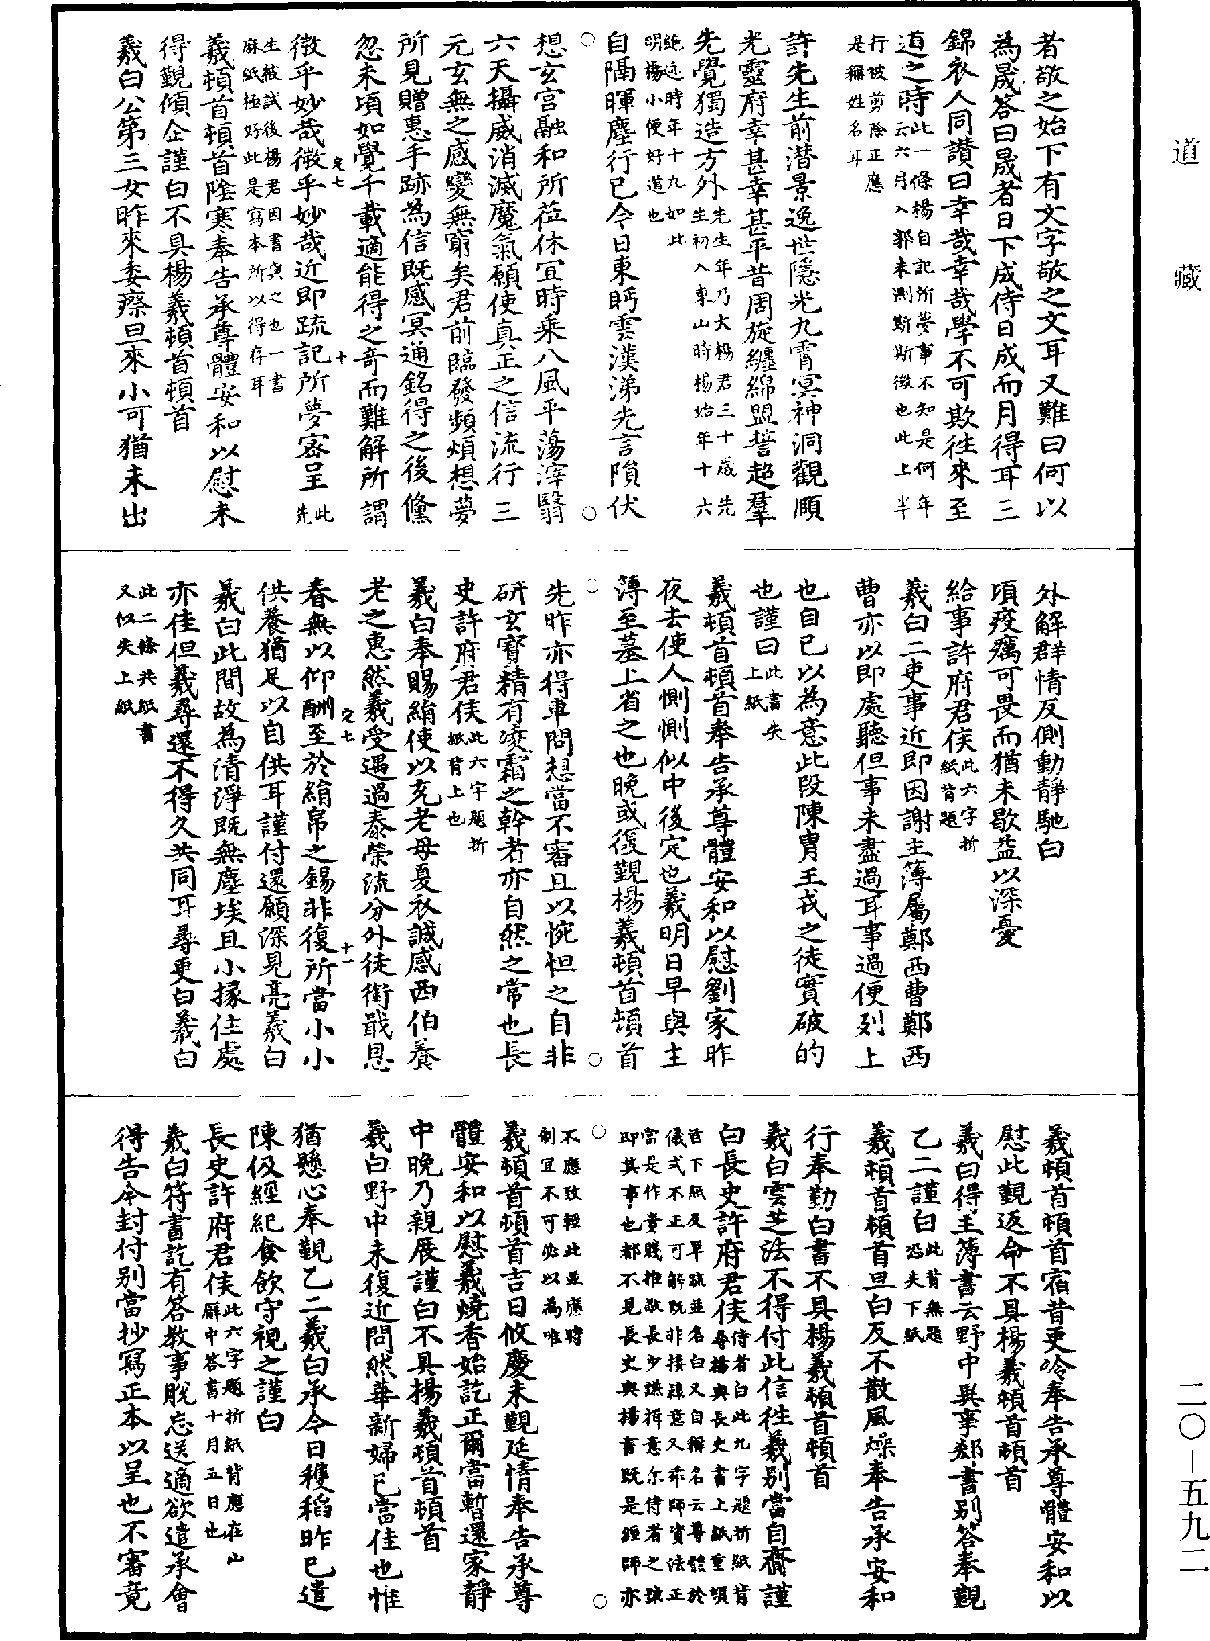 道藏
者敬之始下有文字敬之文耳又難曰何以
為晟答曰晟者日下成侍日成而月得耳三
錦衣人同讚曰幸哉幸哉學不可欺往來至
道之時此一條楊自記所夢事不知是何年
云六月入郭未測斯斯徵也此上半
行被剪除正應
是稱姓名耳
許先生前潜景逸世隱光九霄冥神洞觀願
光靈府幸甚幸甚平昔周旋纏綿盟誓超羣
先覺獨造方外先生年乃大楊君三十歲先
生初入東山時楊始年十六
絶迹時年十九如此
明楊小便好道也
自隔暉塵行已今日東眄雲漢涕先言隕伏
想玄宮融和所莅休宜時乘八風平蕩滓翳
六天攝威消滅魔氣願使真正之信流行三
元玄無之感變無窮矣君前臨發頻煩想夢
所見贈惠手跡為信既感冥通銘得之後儵
忽未頃如覺千載適能得之奇而難解所謂
徵乎妙哉徵乎妙哉近即疏記所夢密呈此
先
生被試後楊君因書與之也一書
麻紙極好此是寫本所以得存耳
羲頓首頓首陰寒奉告承尊體安和以慰未
得覲傾企謹白不具楊羲頓首頓首
羲白公第三女昨來委瘵旦來小可猶未出
外解群情反側動靜馳白
頃疫癘可畏而猶未歇益以深憂
給事許府君侯此六字折
紙背題
羲白二吏事近即因謝主簿屬鄭西曹鄭西
曹亦以即處聽但事未盡過耳事過便列上
也自已以為意此段陳胄王戎之徒實破的
也謹白此書失
上紙
羲頓首頓首奉告承尊體安和以慰劉家昨
夜去使人惻惻似中後定也羲明日早與主
薄至墓上省之也晚或復覲楊羲頓首頓首
先昨亦得車問想當不審且以惋怛之自非
研玄寶精有凌霜之幹者亦自然之常也長
史許府君侯此六字題折
紙背上也
羲白奉賜絹使以充老母夏衣誠感西伯養
老之惠然羲受遇過泰榮流分外徒銜戢恩
春無以仰酬至於絹帛之錫非復所當小小
供養猶足以自供耳謹付還願深見亮羲白
羲白此間故為清淨既無塵埃且小掾住處
亦佳但羲尋還不得久共同耳尋更白羲白
此二條共紙書
又似失上紙
羲頓首頓首宿昔更冷奉告承尊體安和以
慰此覲返命不具楊羲頓首頓首
羲白得主薄書云野中異事郄書別答奉覲
乙二謹白此背無題
恐失下紙
羲頓首頓首旦白反不散風燥奉告承安和
行奉勤白書不具楊羲頓首頓首
羲白雲芝法不得付此信往羲別當自齎謹
白長史許府君侯侍者白此九字題折紙背
尋楊與長史書上紙重頓
首下紙反單疏並名白又自稱名云尊體於
儀式不正可解既非接隸意又乖師資法正
當是作貴賤推敬長少謙揖意尔侍者之疎
即其事也都不見長史與楊書既是經師亦
不應致輕此並應時
制宜不可必以為准
羲頓首頓首吉日攸慶未覲延情奉告承尊
體安和以慰羲燒香始訖正爾當暫還家靜
中晚乃親展謹白不具楊羲頓首頓首
羲白野中未復近問然華新婦已當佳也惟
猶懸心奉覲乙二羲白承今日穫稻昨已遣
陳伋經紀食飲守視之謹白
長史許府君侯此六字題折紙背應在山
廨中答書十月五日也
羲白符書訖有答教事脫忘送適欲遣承會
得告今封付別當抄寫正本以呈也不審竟
二〇—五九二